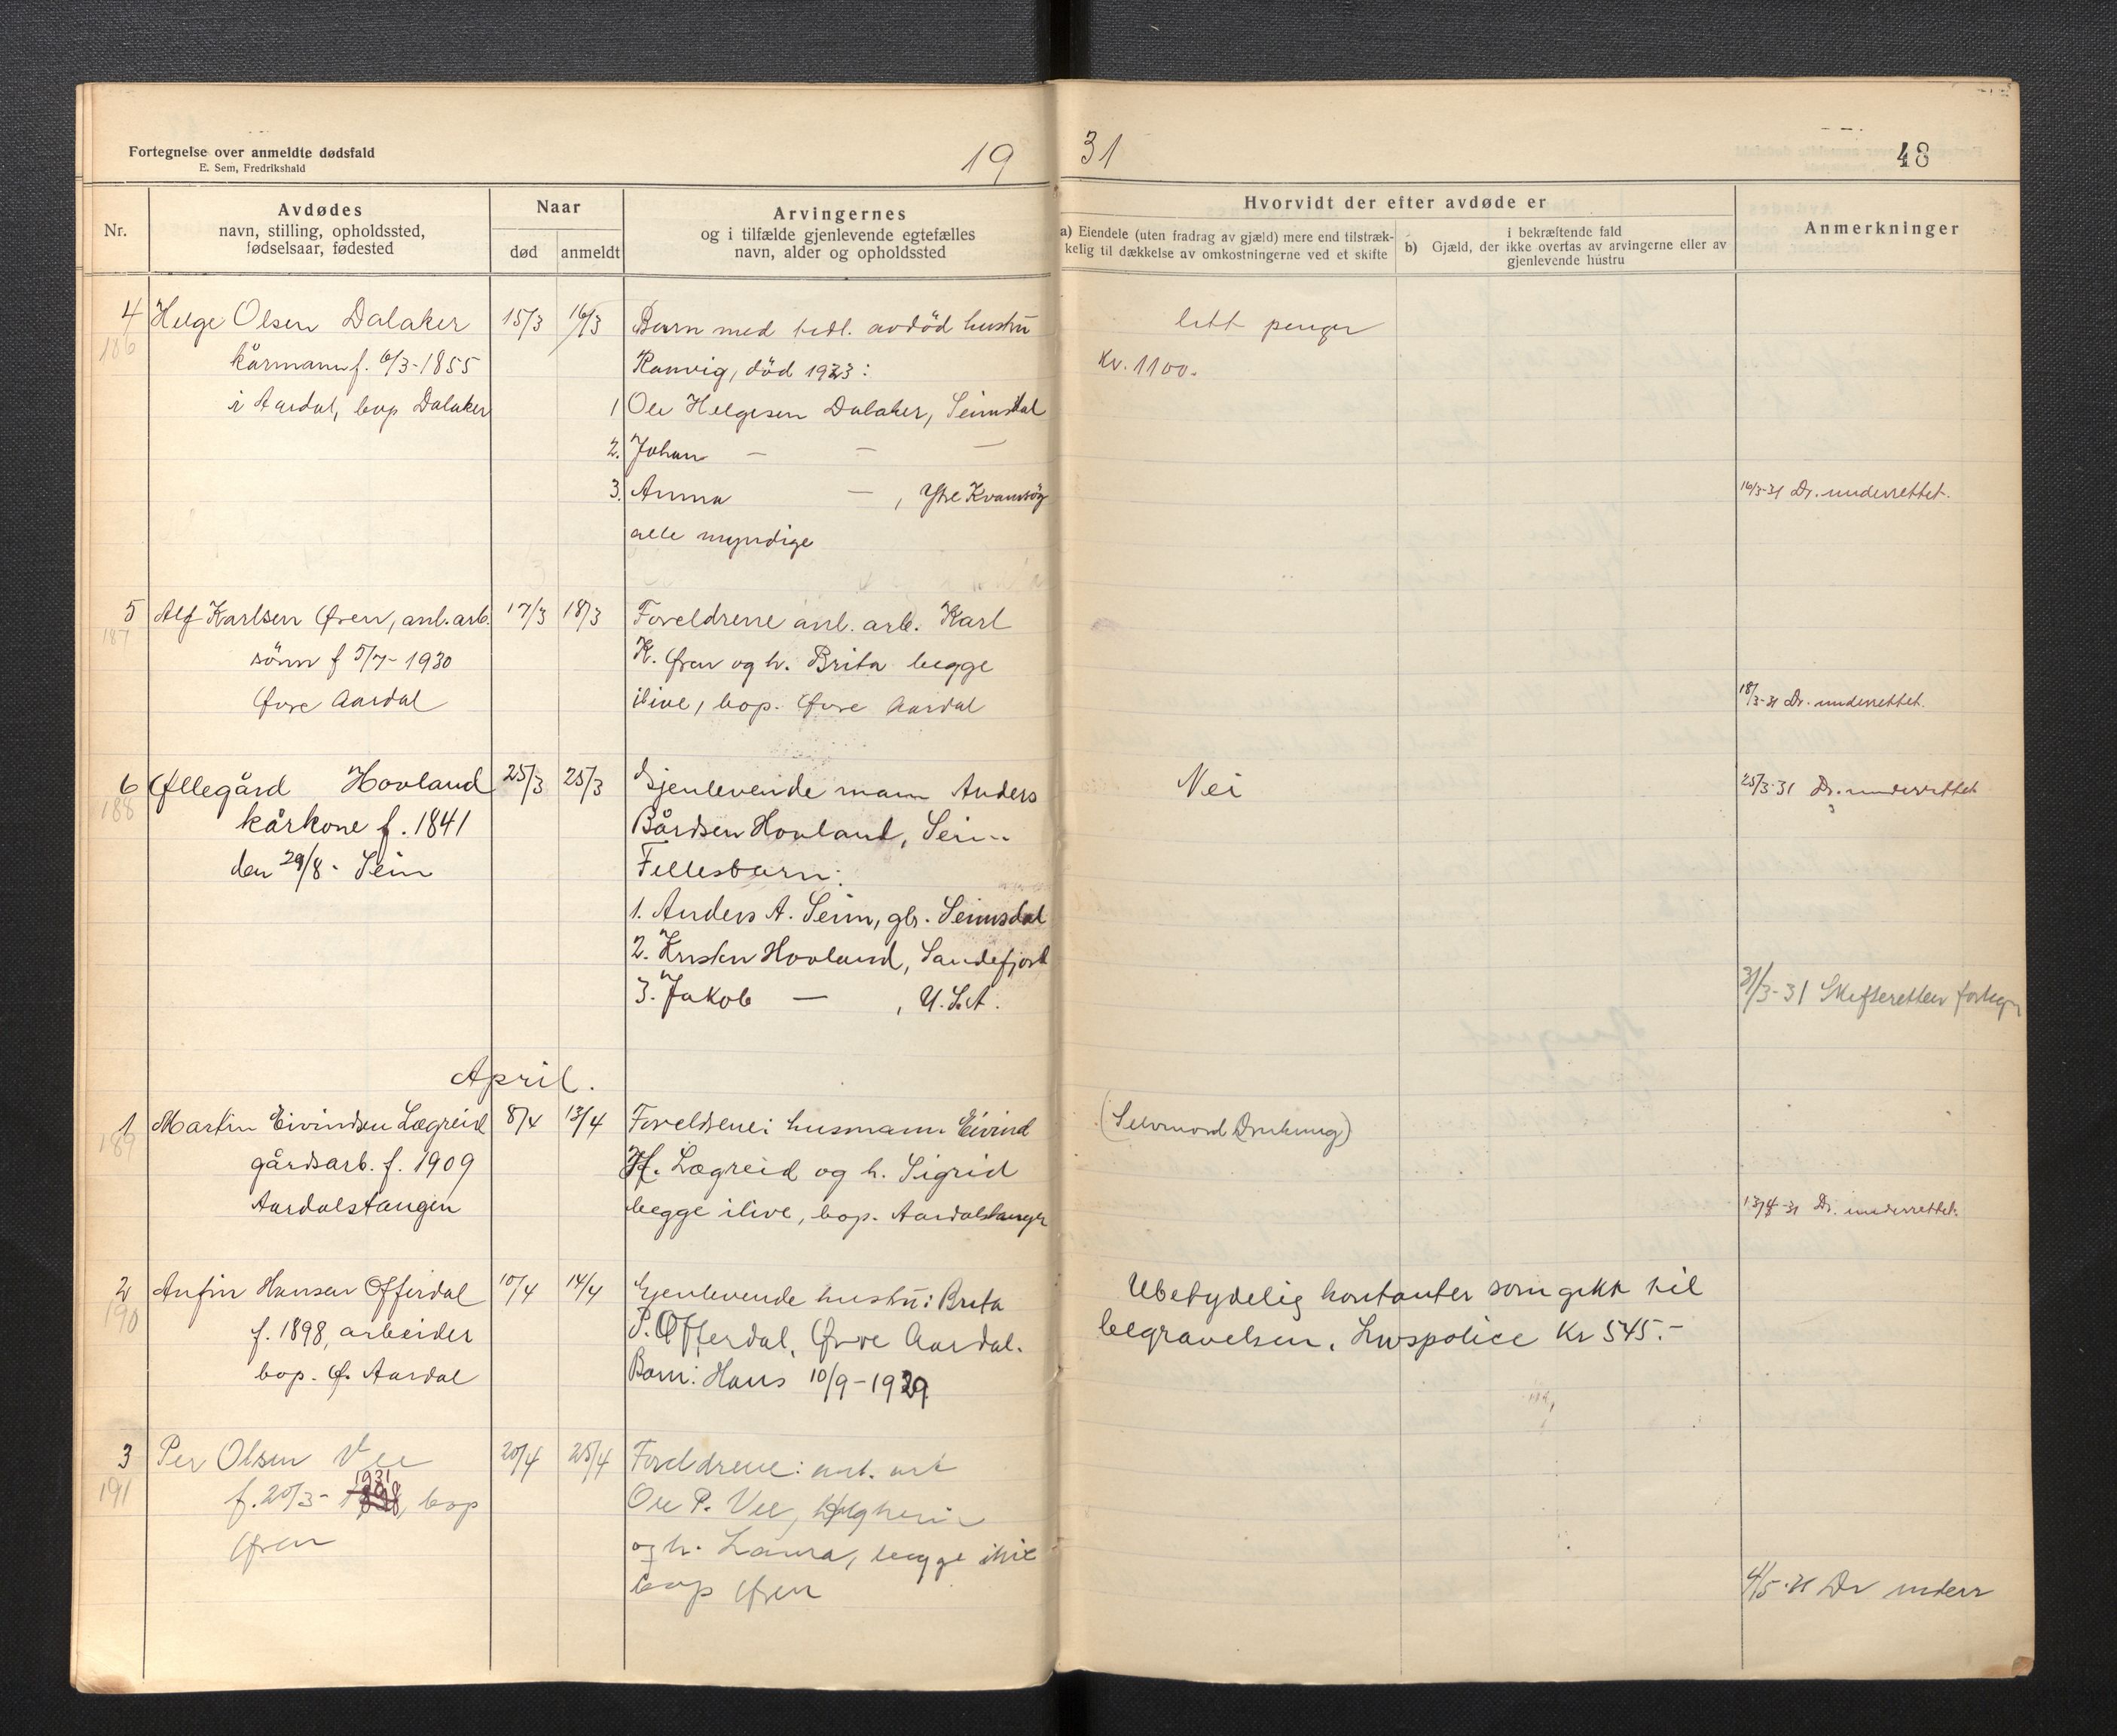 Fortegnelse over anmeldte dødsfald
E. Sem, Fredrikshald
19
31
48
Nr.
Avdødes
navn, stilling, opholdssted,
fødselsaar, fødested
Naar
død
anmeldt
Arvingernes
og i tilfælde gjenlevende egtefælles
navn, alder og opholdssted
Hvorvidt der efter avdøde er
a) Eiendele (uten fradrag av gjæld) mere end tilstræk-
kelig til dækkelse av omkostningerne ved et skifte
i bekræftende fald
b) Gjæld, der ikke overtas av arvingerne eller av
gjenlevende hustru
Anmerkninger
4 Helge Olsen Dalaker 15/3 16/3 Barn med tidl. avdöd hustru litt penger
186 kårmann f. 6/3-1855 Ranvig, död 1923: Kr. 1100.
i Aardal, bop Dalaker 1 Ole Helgesen Dalaker, Seimsdal
2. Johan — — —
3. Anna — , Ytre Kvamsög 16/3-31 Dr. underrettet.
alle myndige
5 Alf Karlsen Øren, anl. arb. 17/3 18/3 Foreldrene anl. arb. Karl
187 sönn f 5/7-1930 K. Øren og h. Brita begge
Øvre Aardal ilive, bop. Øvre Aardal 18/3-31 Dr. underrettet.
6 Øllegård Hovland 25/3 25/3 Gjenlevende mann Anders Nei 25/3-31 Dr. underrettet
188 kårkone f. 1841 Bårdsen Hovland, Seim
den 29/8- Seim Fellesbarn:
1. Anders A. Seim, gbr. Seimsdal
2. Kristen Hovland, Sandefjord
3. Jakob — , U.S.A. 31/3-31 Skifteretten fortegn
April.
1 Martin Eivindsen Lægreid 8/4 13/4 Foreldrene: husmann Eivind (Selvmord Drukning)
189 gårdsarb. f. 1909 H. Lægreid og h. Sigrid
Aardalstangen begge ilive, bop. Aardalstangen 13/4-31 Dr. underrettet.
2 Anfin Hansen Offerdal 10/4 14/4 Gjenlevende hustru: Brita Ubetydelig kontanter som gikk til
190 f. 1898, arbeider P. Offerdal, Øvre Aardal. begravelsen. Livspolice Kr 545.-
bop. Ø. Aardal Barn: Hans 10/9-1929
3 Per Olsen Vee 20/4 25/4 Foreldrene: anl. arb
191 f. 20/3- 1931, bop Ole P. Vee,
Øren og h. Laura, begge ilive
bop Øren 4/5-31 Dr underr